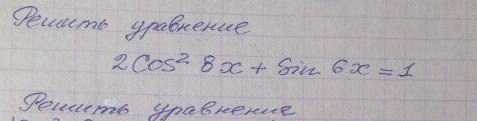 Решить уравнение
2Cos² 8x + Sin 6x = 1
Решить уравнение